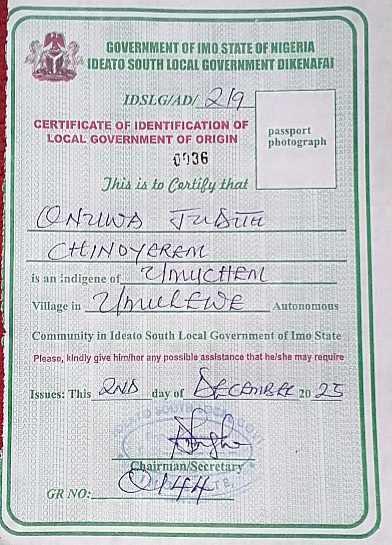 GOVERNMENT OF IMO STATE OF NIGERIA
IDEATO SOUTH LOCAL GOVERNMENT DIKENAFAI
IDSLG/AD/ 219
CERTIFICATE OF IDENTIFICATION OF
LOCAL GOVERNMENT OF ORIGIN
passport
photograph
0036
This is to Certify that
ONUWA JUDITH
CHINOYEREM
is an indigene of UMUCHEM
Village in UMULEWE Autonomous
Community in Ideato South Local Government of Imo State
Please, kindly give him/her any possible assistance that he/she may require
Issues: This 2ND day of DECEMBER 20 25
Chairman/Secretary
GR NO: 0144